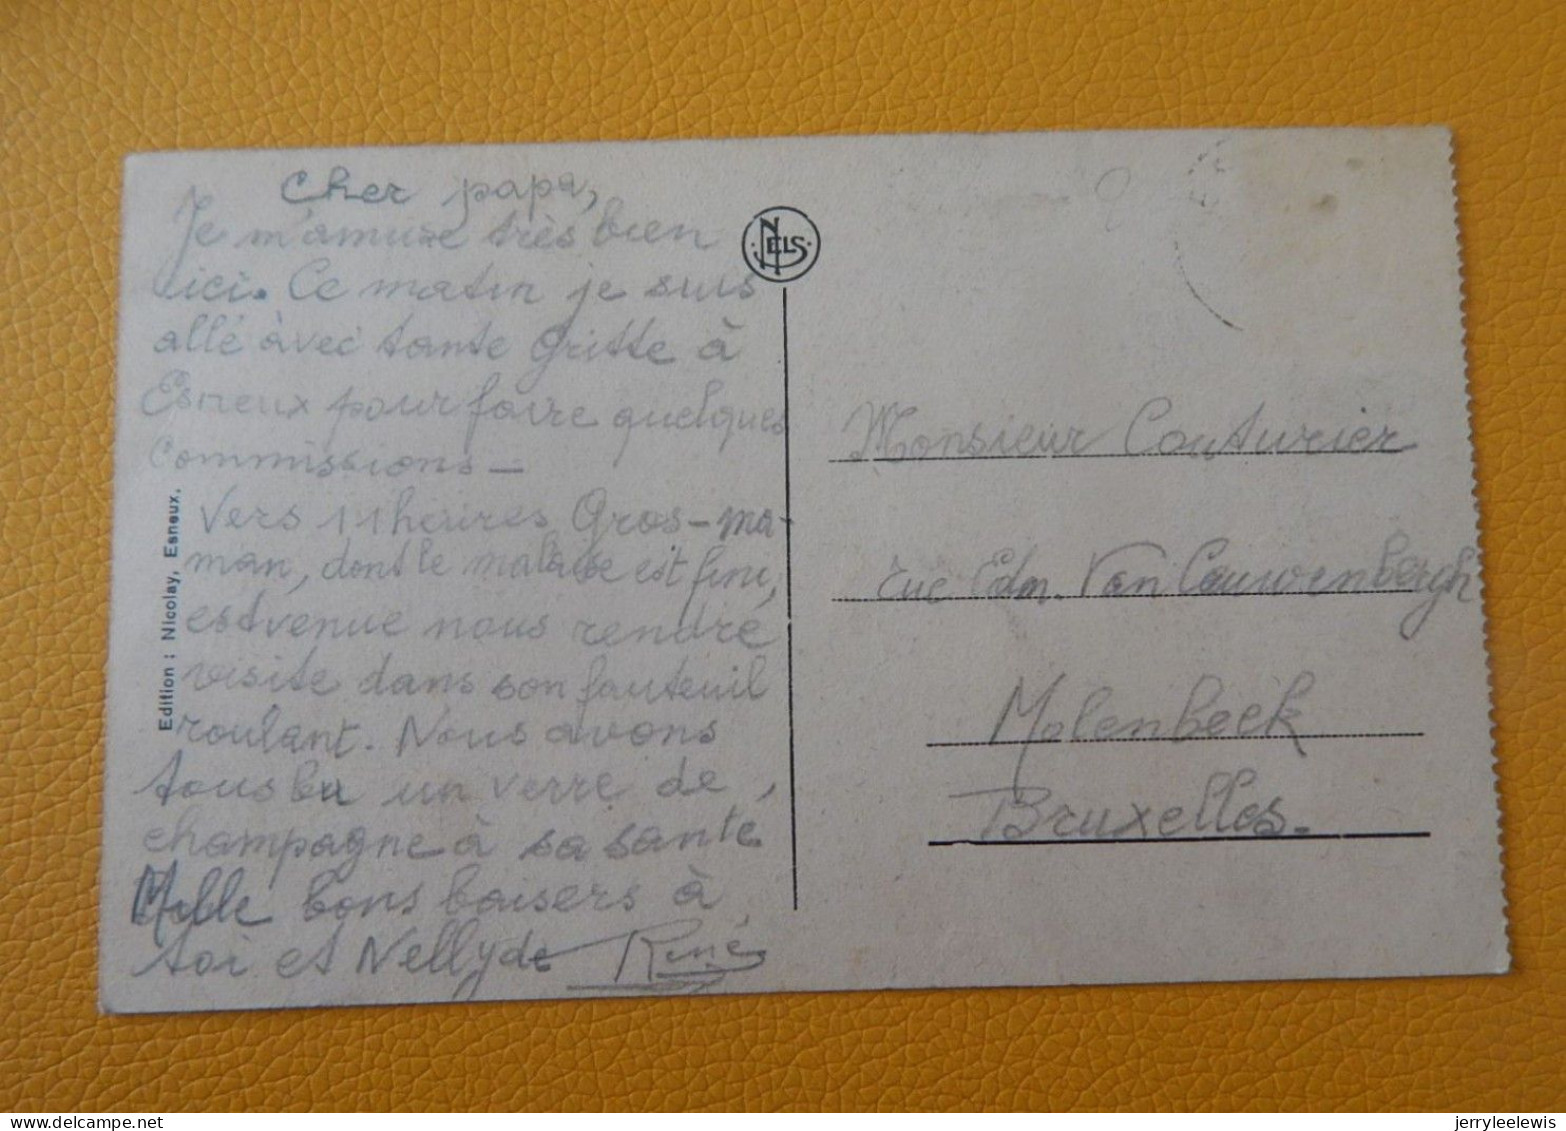 Cher papa,
Je m'amuse très bien
ici. Ce matin je suis
allé avec tante Gritte à
Esneux pour faire quelques
commissions -
Vers 11 heures Gros-ma-
man, dont le malaise est fini,
est venue nous rendre
visite dans son fauteuil
roulant. Nous avons
tous bu un verre de
champagne à sa santé
Mille bons baisers à
toi et Nelly de René
Edition : Nicolay, Esneux.
NELS
Monsieur Couturier
rue Edm. Van Cauwenbergh
Molenbeek
Bruxelles.
jerryleelewis